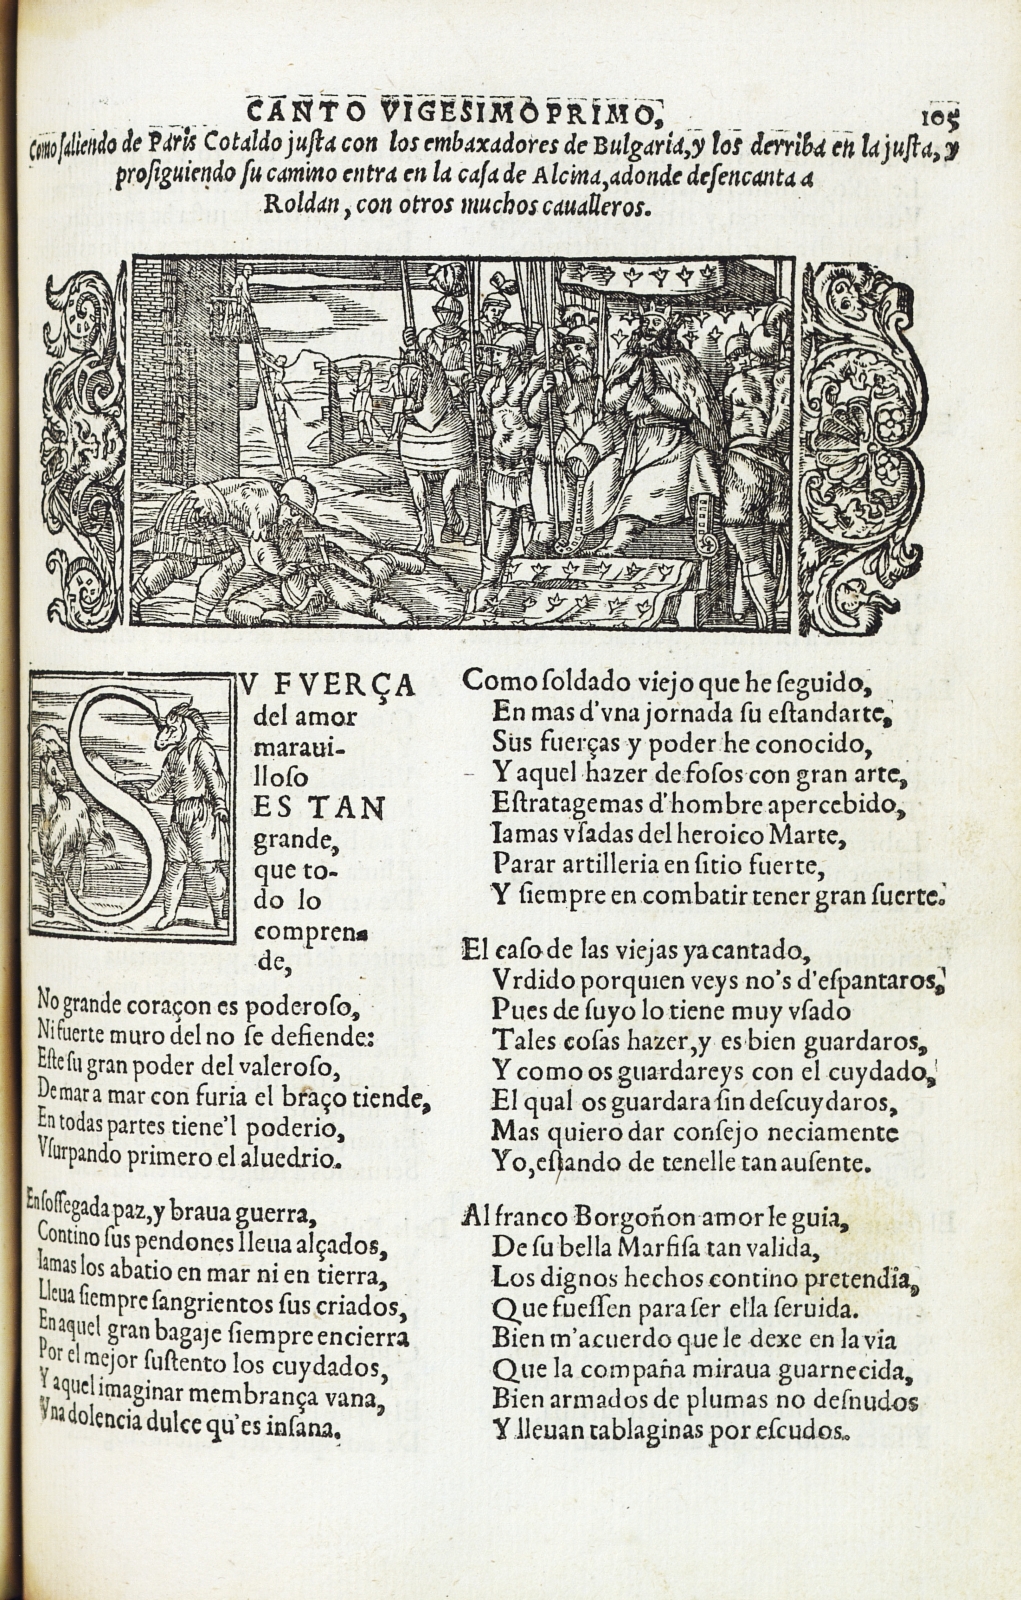 CANTO VIGESIMOPRIMO,
105
Como ſaliendo de Paris Cotaldo juſta con los embaxadores de Bulgaria, y los derriba en la juſta, y
proſiguiendo ſu camino entra en la caſa de Alcina, adonde deſencanta a
Roldan, con otros muchos caualleros.
SV FVERÇA
del amor
maraui-
lloſo
ES TAN
grande,
que to-
do lo
compren-
de,
No grande coraçon es poderoſo,
Ni fuerte muro del no ſe defiende:
Eſte ſu gran poder del valeroſo,
De mar a mar con furia el braço tiende,
En todas partes tiene'l poderio,
Vſurpando primero el aluedrio.
En ſoſſegada paz, y braua guerra,
Contino ſus pendones lleua alçados,
Iamas los abatio en mar ni en tierra,
Lleua ſiempre ſangrientos ſus criados,
En aquel gran bagaje ſiempre encierra
Por el mejor ſuſtento los cuydados,
Y aquel imaginar membrança vana,
Vna dolencia dulce qu'es inſana.
Como ſoldado viejo que he ſeguido,
En mas d'vna jornada ſu eſtandarte,
Sus fuerças y poder he conocido,
Y aquel hazer de foſos con gran arte,
Eſtratagemas d'hombre apercebido,
Iamas vſadas del heroico Marte,
Parar artilleria en ſitio fuerte,
Y ſiempre en combatir tener gran ſuerte.
El caſo de las viejas ya cantado,
Vrdido por quien veys no's d'eſpantaros,
Pues de ſuyo lo tiene muy vſado
Tales coſas hazer, y es bien guardaros,
Y como os guardareys con el cuydado,
El qual os guardara ſin deſcuydaros,
Mas quiero dar conſejo neciamente
Yo, eſtando de tenelle tan auſente.
Al franco Borgoñon amor le guia,
De ſu bella Marfiſa tan valida,
Los dignos hechos contino pretendia,
Que fueſſen para ſer ella ſeruida.
Bien m'acuerdo que le dexe en la via
Que la compaña miraua guarnecida,
Bien armados de plumas no deſnudos
Y lleuan tablaginas por eſcudos.